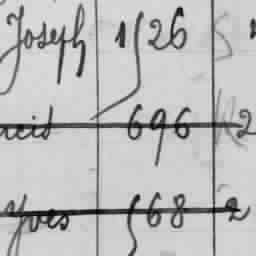 Joseph 1526
696 2
Yves 568 2